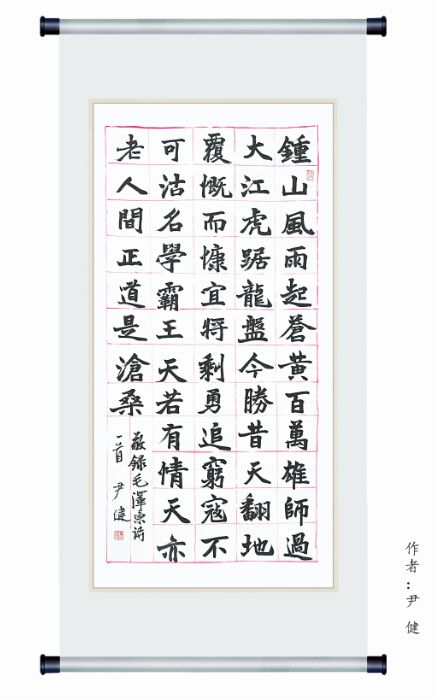 鍾山風雨起蒼黃百萬雄師過
大江虎踞龍盤今勝昔天翻地
覆慨而慷宜將剩勇追窮寇不
可沽名學霸王天若有情天亦
老人間正道是滄桑
敬錄毛澤東詩
一首 尹健
作者:尹 健